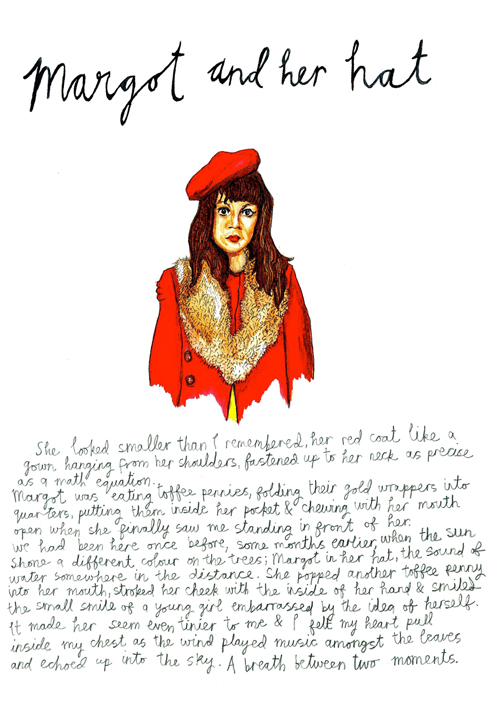 Margot and her hat
She looked smaller than I remembered, her red coat like a
gown hanging from her shoulders, fastened up to her neck as precise
as a math equation.
Margot was eating toffee pennies, folding their gold wrappers into
quarters, putting them inside her pocket & chewing with her mouth
open when she finally saw me standing in front of her.
We had been here once before, some months earlier, when the sun
shone a different colour on the trees; Margot in her hat, the sound of
water somewhere in the distance. She popped another toffee penny
into her mouth, stroked her cheek with the inside of her hand & smiled
the small smile of a young girl embarrassed by the idea of herself.
It made her seem even tinier to me & I felt my heart pull
inside my chest as the wind played music amongst the leaves
and echoed up into the sky. A breath between two moments.